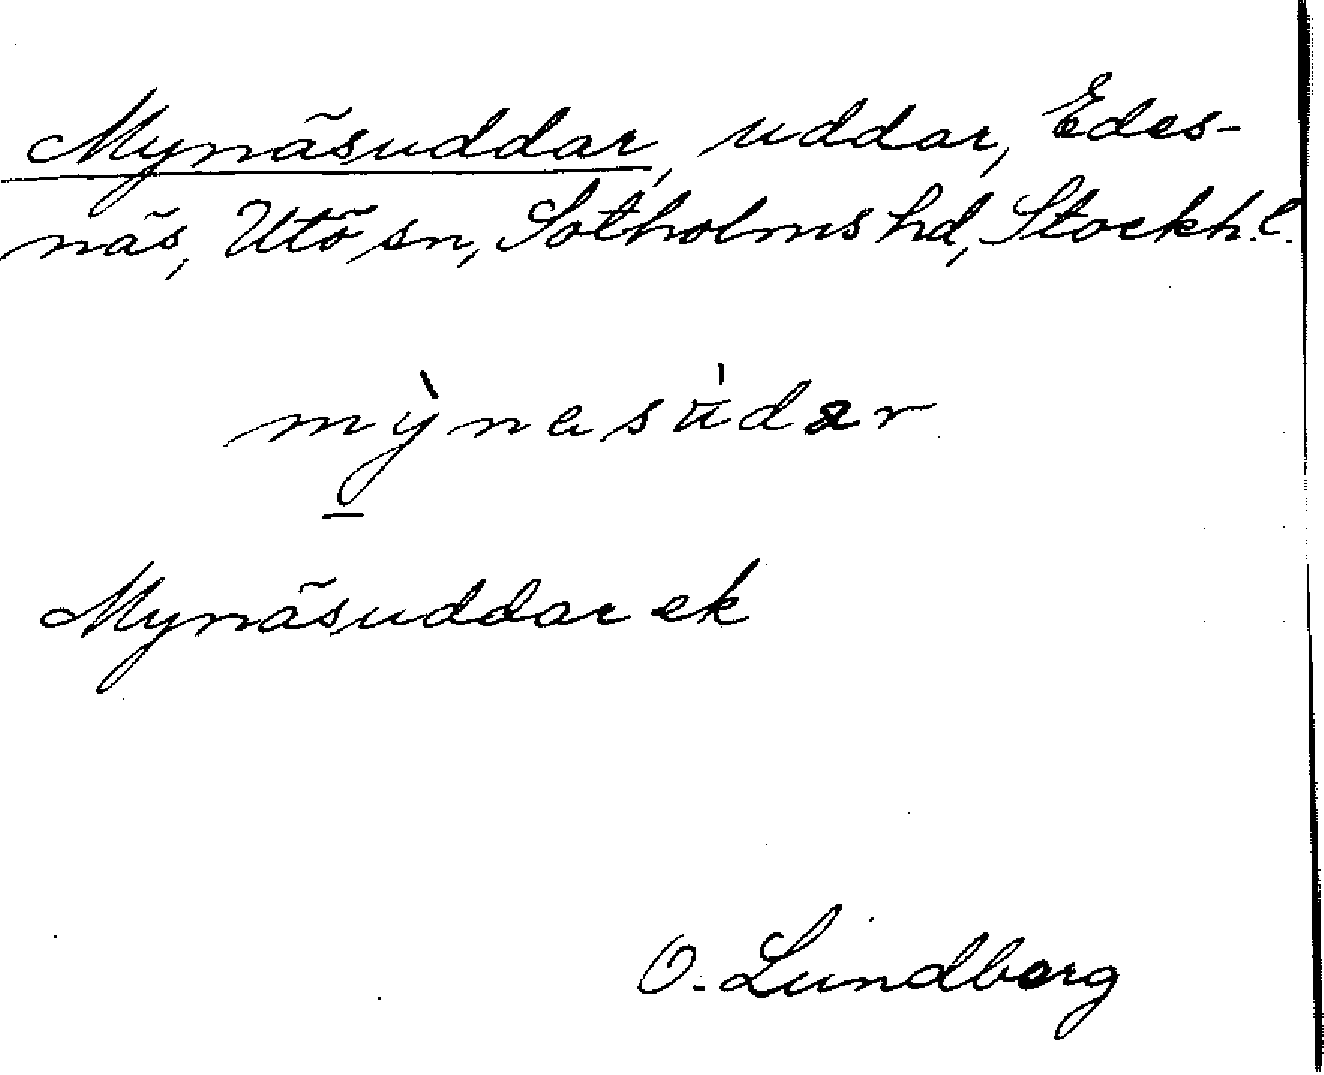 Mynäsuddar, uddar, Edes-
näs, Utö sn, Sotholms hd, Stockh. l.
mỳnasùdar
Mynäsuddar ek
O. Lundberg